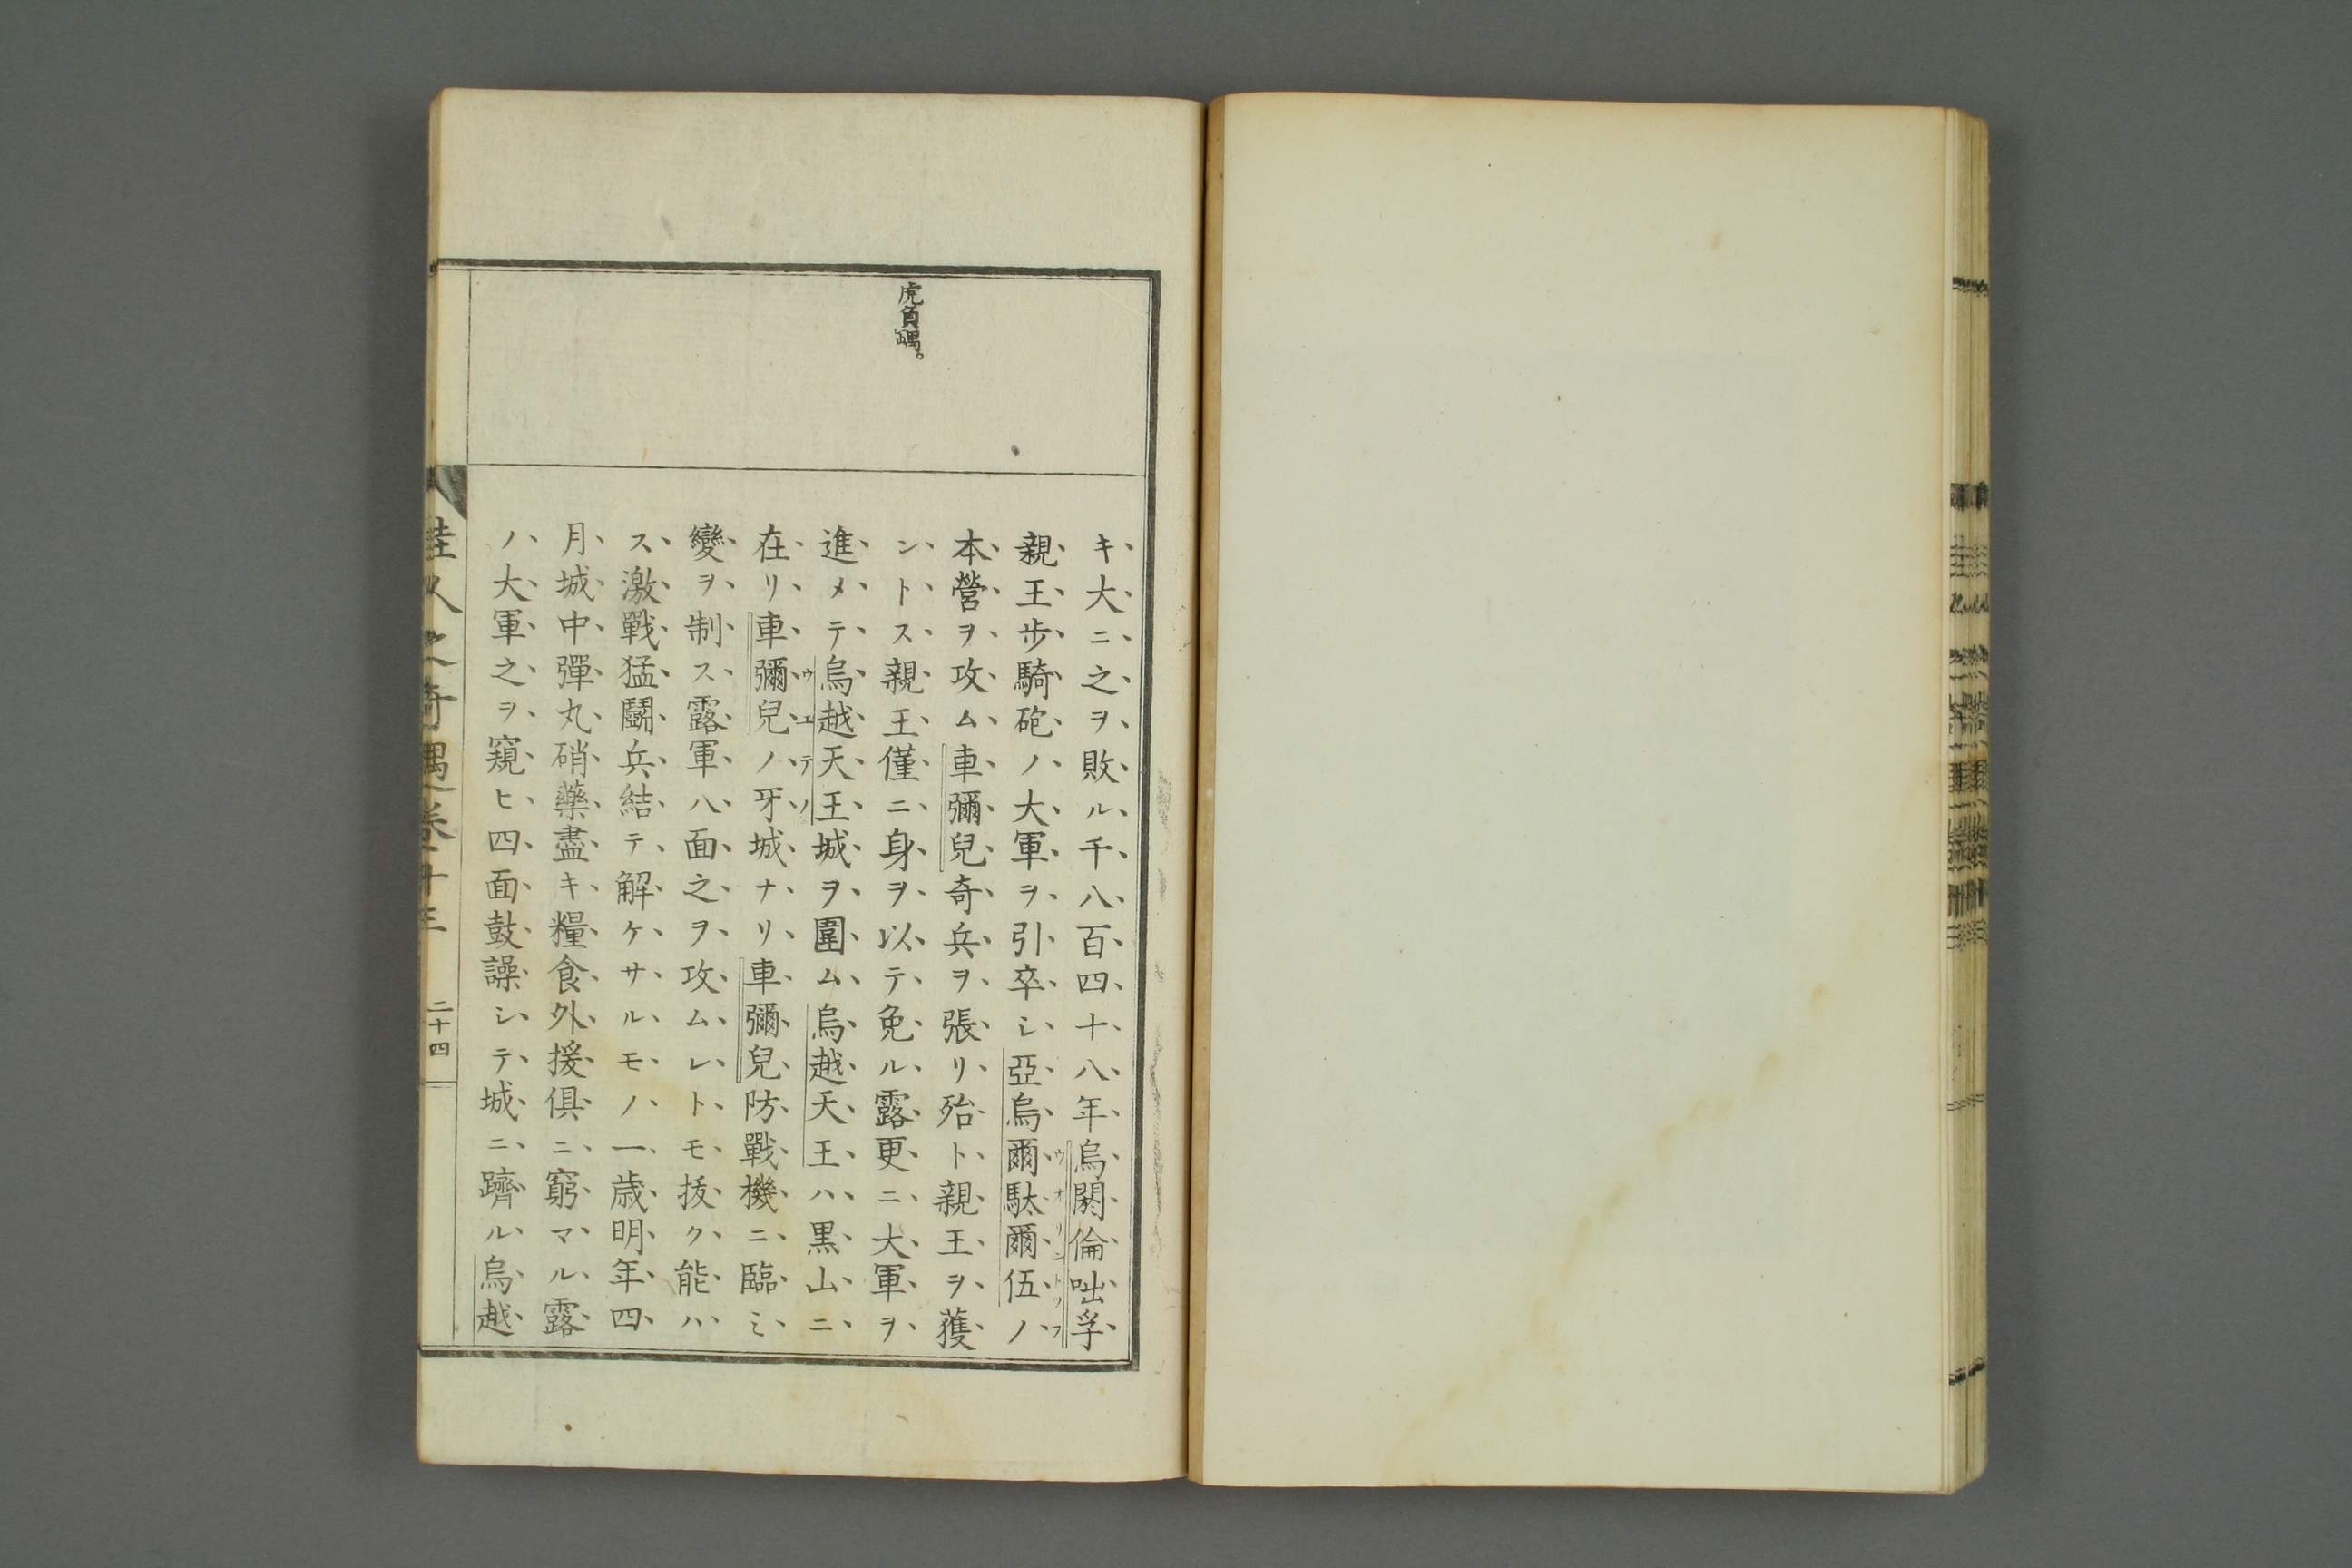 虎負嵎。
キ大ニ之ヲ敗ル千八百四十八年烏閼倫咄孚
ウオリントツフ
親王歩騎砲ノ大軍ヲ引卒シ亞烏爾駄爾伍ノ
本營ヲ攻ム車彌兒奇兵ヲ張リ殆ト親王ヲ獲
ントス親王僅ニ身ヲ以テ免ル露更ニ大軍ヲ
進メテ烏越天王城ヲ圍ム烏越天王ハ黒山ニ
ウエテノ
在リ車彌兒ノ牙城ナリ車彌兒防戰機ニ臨ミ
變ヲ制ス露軍八面之ヲ攻ムレトモ拔ク能ハ
ス激戰猛鬪兵結テ解ケサルモノ一歳明年四
月城中彈丸硝藥盡キ糧食外援俱ニ窮マル露
ノ大軍之ヲ窺ヒ四面鼓譟シテ城ニ躋ル烏越
佳人之奇遇卷十三
二十四